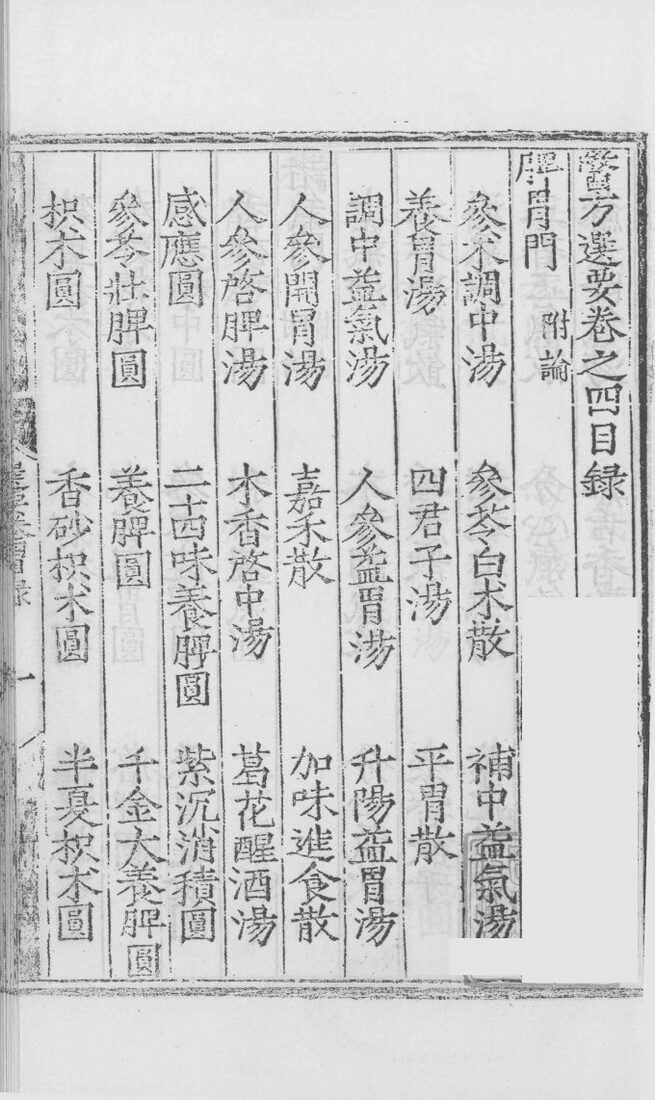 醫方選要卷之四目録
脾胃門 附論
參术調中湯 參苓白术散 補中益氣湯
養胃湯 四君子湯 平胃散
調中益氣湯 人參益胃湯 升陽益胃湯
人參開胃湯 嘉禾散 加味進食散
人參啓脾湯 木香啓中湯 葛花醒酒湯
感應圓 二十四味養脾圓 紫沉消積圓
參苓壯脾圓 養脾圓 千金大養脾圓
枳术圓 香砂枳术圓 半夏枳术圓